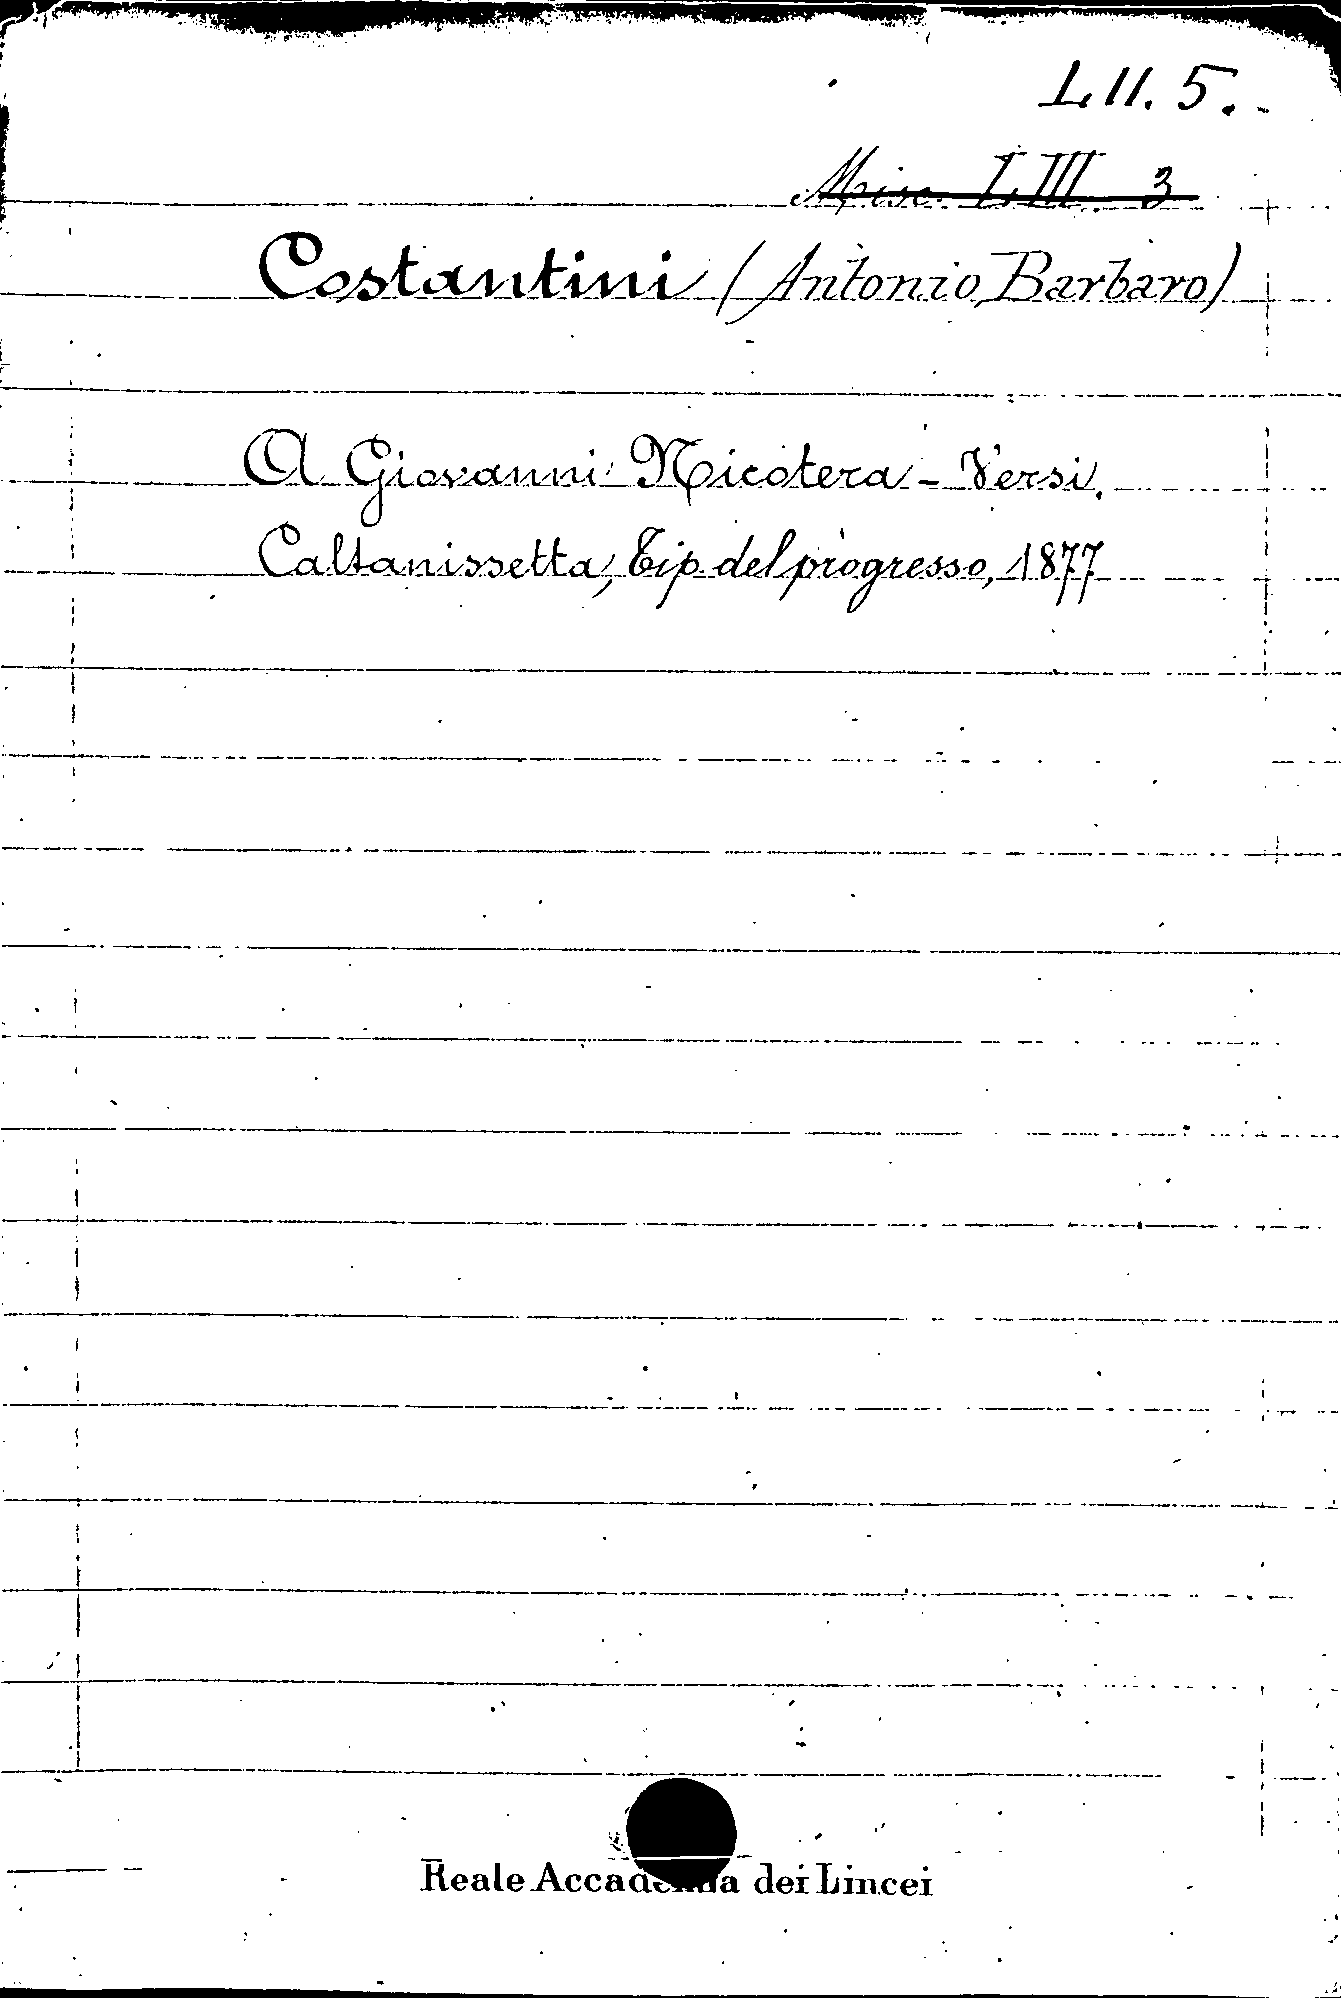 LII. 5.
Misc. LIII. 3
Costantini (Antonio Barbaro)
A Giovanni Nicotera - Versi.
Caltanissetta, Tip. del progresso, 1877
Reale Accademia dei Lincei